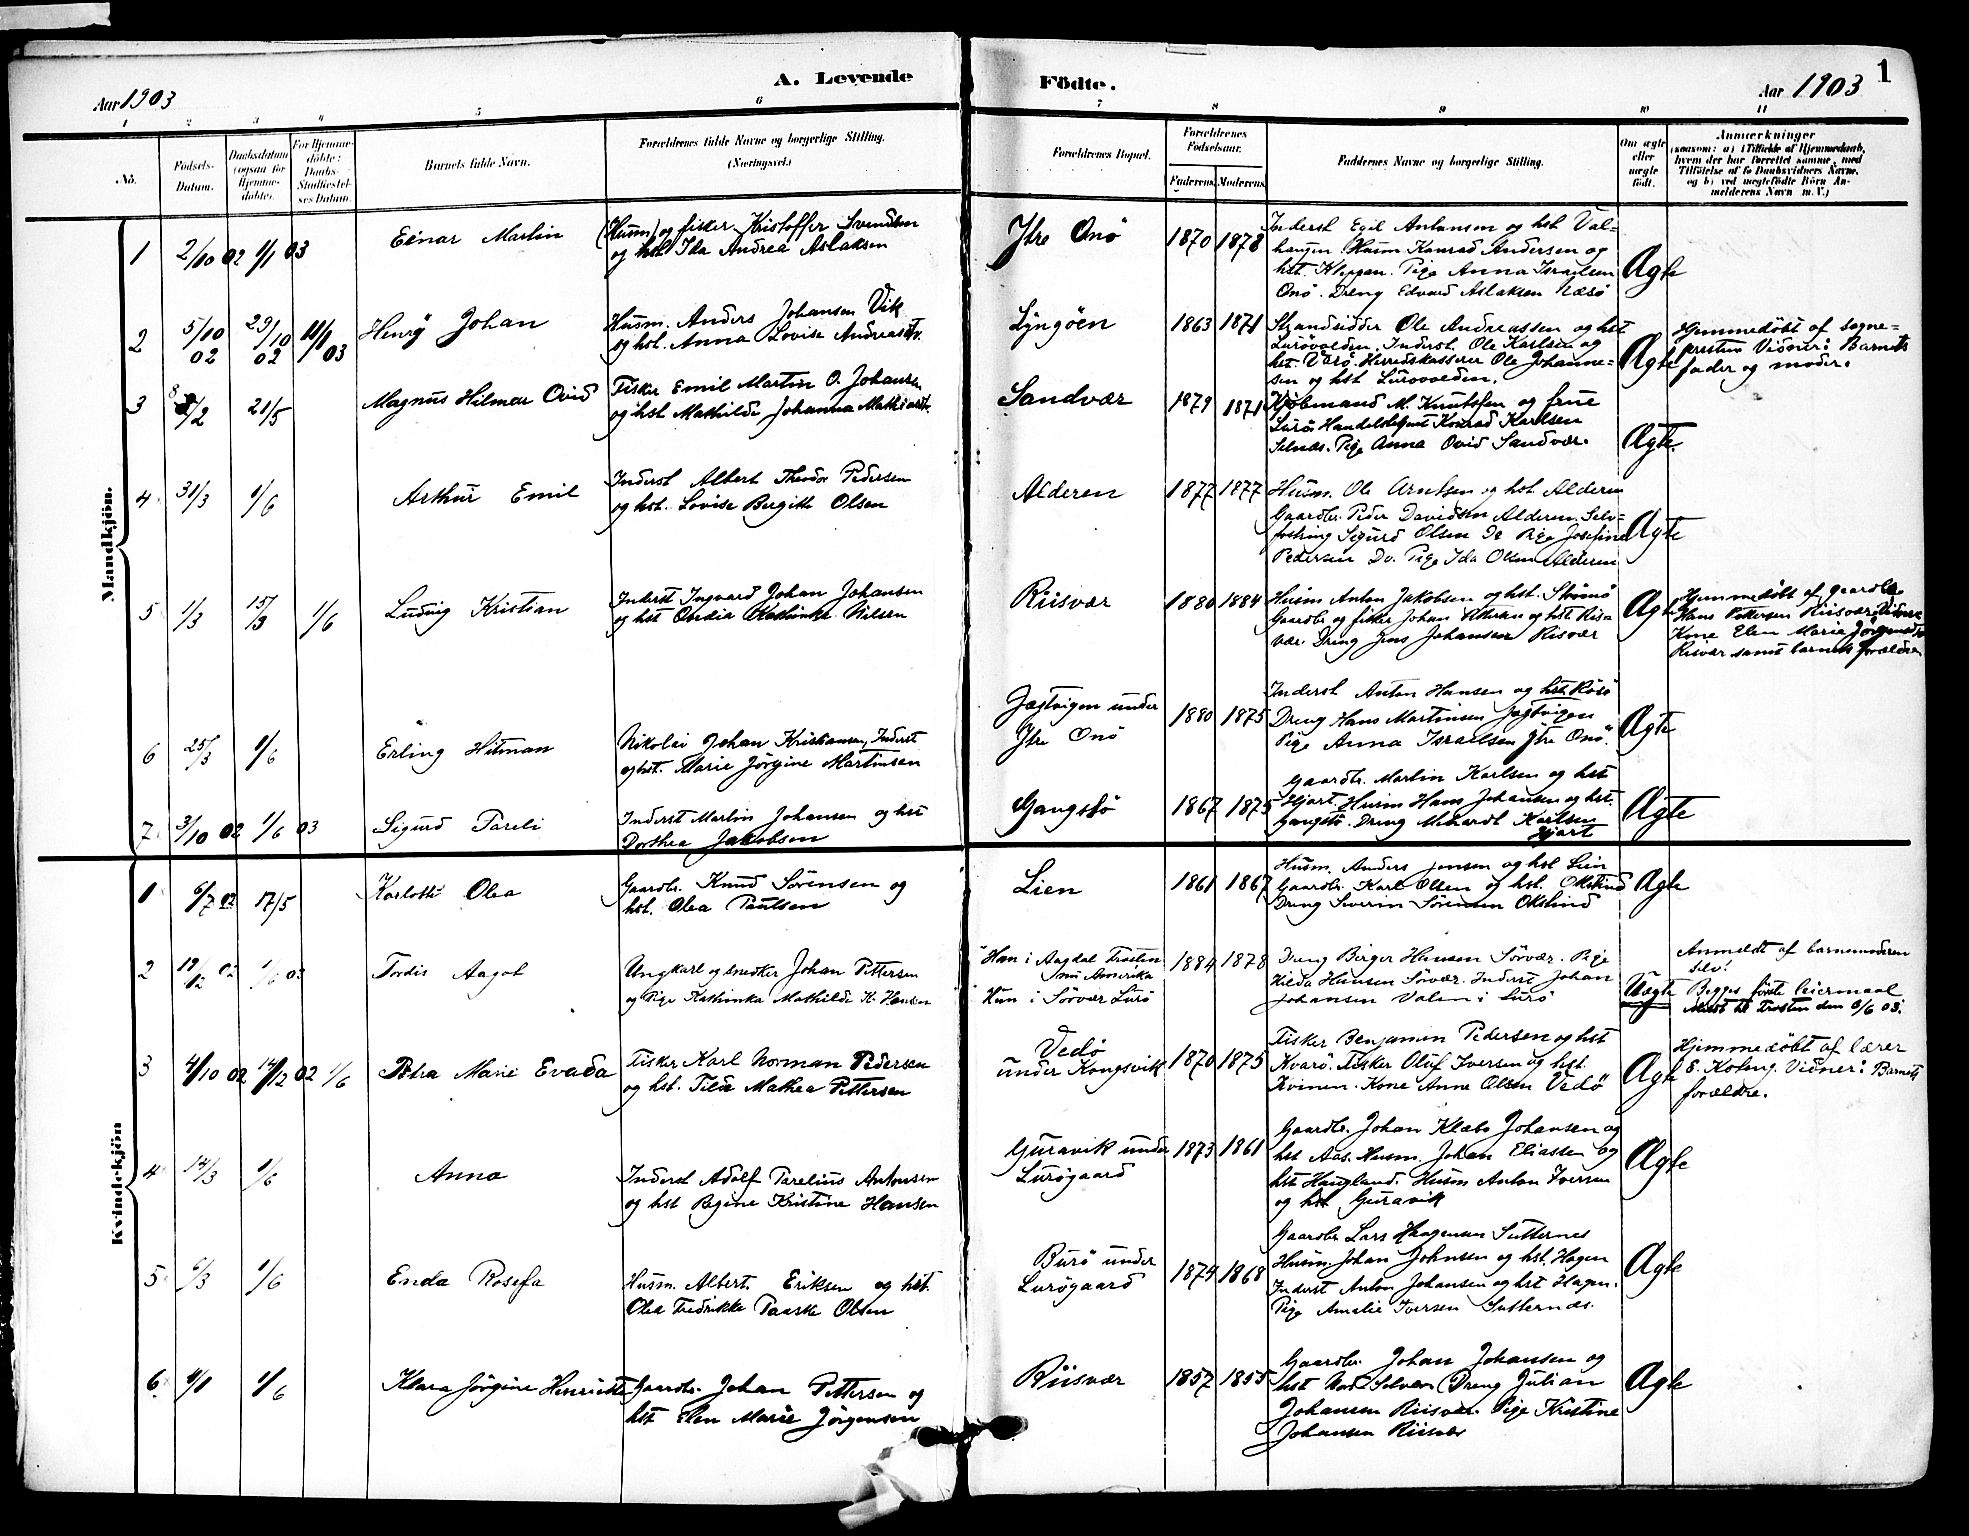 A. Levende
Födte.
1
Aar 1903
Aar 1903
1 2 3 4 5 6 7 8 9 10 11
No.
Födsels-
Datum.
Daabsdatum
(ogsaa for
Hjemme-
döbte).
For Hjemme-
döbte:
Daabs-
Stadfæstel-
ses Datum.
Barnets fulde Navn.
Forældrenes fulde Navne og borgerlige Stilling.
(Næringsvei.)
Forældrenes Bopæl.
Forældrenes
Födselsaar.
Faderens. Moderens.
Faddernes Navne og borgerlige Stilling.
Om ægte
eller
uægte
födt.
Anmærkninger
(saasom: a) i Tilfælde af Hjemmedaab,
hvem der har forrettet samme, med
Tilföielse af to Daabsvidners Navne,
og b) ved uægtefödte Börn An-
melderens Navn m. V.)
Mandkjön.
1 2/10 02 1/1 03 Einar Martin
(Husm) og fisker Kristoffer Svendsen
og hst. Ida Andrea Aslaksen
Ytre Onö 1870 1878
Inderst Egil Antonsen og hst Val-
haugen. Husm Konrad Andersen og
hst. Kleppen. Pige Anna Israelsen
Onö. Dreng Edvard Aslaksen Næsö
Ægte
2 5/10 02 29/10 02 11/1 03 Henry Johan
Husm. Anders Johansen Vik
og hst. Anna Lovise Andreasdtr.
Lyngöen 1863 1871
Strandsidder Ole Andreassen og hst
Lurövolden. Inderst. Ole Karlsen og
hst. Varö. Herredskasserer Ole Johanne-
sen og hst Lurövolden.
Ægte
Hjemmedöbt af sogne-
presten Vidner: Barnets
fader og moder.
3 8/2 21/5 Magnus Hilmar Ovid
Fisker Emil Martin O. Johansen
og hst Mathilde Johanna Mathiasdtr.
Sandvær 1879 1871
Kjöbmand M. Knutsen og frue
Lurö. Handelsbetjent Konrad Karlsen
Selnæs. Pige Anna Ovid Sandvær.
Ægte.
4 31/3 1/6 Arthur Emil
Inderst Albert Theodor Pedersen
og hst. Lovise Bergitte Olsen
Alderen 1877 1877
Husm. Ole Arntsen og hst. Alderen
Gaardbr. Peder Davidsen Alderen. Selv-
fostring Sigurd Olsen Do Pige Josefine
Pedersen Do. Pige Ida Olsen Alderen
Ægte
5 1/3 15/3 1/6 Ludvig Kristian
Inderst Ingvard Johan Johansen
og hst Obedia Kathinka Nilsen
Riisvær 1880 1884
Husm Anton Jakobsen og hst. Strömö
Gaardbr og fisker Johan Petersen og hst Riis-
vær. Dreng Jens Johansen Risvær
Ægte
Hjemmedöbt af gaardbr.
Hans Pettersen Riisvær. Vidner:
Kone Elen Marie Jörgensdtr
Risvær samt barnets forældre
6 25/3 1/6 Erling Hitman
Nikolai Johan Kristiansen, Inderst
og hst. Marie Jörgine Martinsen
Jægtvigen under
Ytre Onö
1880 1875
Inderst Anton Hansen og hst Rösö
Dreng Hans Martinsen Jagtvigen
Pige Anna Israelsen Ytre Onö.
Ægte
7 3/10 02 1/6 03 Sigurd Pareli
Inderst Martin Johansen og hst
Dorthea Jakobsen
Gangstö 1867 1875
Gaardbr. Martin Karlsen og hst
Hjart. Husm Hans Johansen og hst.
Gangstö. Dreng Meiardt Karlsen
Hjart
Ægte
Kvindekjön
1 6/7 02 17/5 Karlotte Olea
Gaardbr. Knud Sörensen og
hst. Olea Paulsen
Lien 1861 1867
Husm. Anders Jensen og hst Lien
Gaardbr. Karl Olsen og hst. Okstind
Dreng Severin Sörensen Okstind
Ægte
2 19/12 02 1/6 03 Tordis Aagot
Ungkarl og snedker Johan Pettersen
og Pige Kathinka Mathilde K. Hansen
Han i Aagdal Trosten
Som Amerika
Hun i Sörvær Lurö
1884 1878
Dreng Birger Hansen Sörvær. Pige
Hilda Hansen Sörvær. Inderst Johan
Johansen Valen i Lurö
Uægte
Anmeldt af barnemoderen
selv.
Begges förste leiermaal
Meldt til Trosten den 8/6 03.
3 4/10 02 14/12 02 1/6 Petra Marie Evada
Fisker Karl Norman Pedersen
og hst. Tilda Mathea Pettersen
Vedö
under Kongsvik
1870 1875
Fisker Benjamin Pedersen og hst
Kvarö. Fisker Oluf Iversen og hst.
Kvinen. Kone Anne Olsen Vedö
Ægte
Hjemmedöbt af lærer
E. Koteng. Vidner: Barnets
forældre.
4 14/3 1/6 Anna
Inderst Adolf Parelius Antonsen
og hst Regine Kristine Hansen
Guravik under
Luröygaard
1873 1861
Gaardbr. Johan Klæbo Johansen og
hst Aas. Husm. Johan Eliassen og
hst Haugland. Husm Anton Iversen
og hst Guravik
Ægte
5 6/3 1/6 Enda Rosefa
Husm. Albert Eriksen og hst.
Olea Fredrikke Paaske Olsen
Burö under
Lurögaard
1874 1868
Gaardbr Lars Haagensen Sutternes
Husm Johan Johnsen og hst. Hagen
Inderst Anton Johansen og hst Hagen.
Pige Amalie Iversen Sutternæs.
Ægte
6 9/1 1/6 Klara Jörgine Henriette
Gaardbr. Johan Pettersen og
hst Elen Marie Jörgensen
Riisvær 1857 1855
Gaardbr. Johan Johansen og
hst Nord Selvær. Dreng Julian
Johansen Riisvær. Pige Kristine
Johansen Riisvær
Ægte